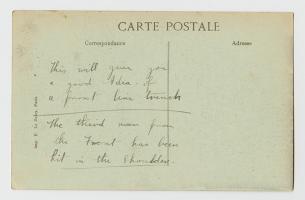 CARTE POSTALE
Correspondance
Adresse
This will give you
a good Idea of
a front line trench
The third man from
the Front has been
hit in the Shoulder.